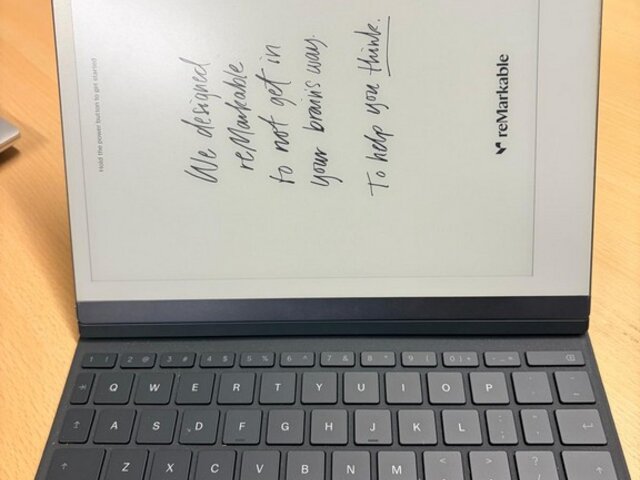 Hold the power button to get started
We designed
reMarkable
to not get in
your brain's way.
To help you think.
reMarkable
1 ! 2 @ 3 # 4 $ 5 % 6 ^ 7 & 8 * 9 ( 0 ) - _
Q W E R T Y U I O P
A S D F G H J K L
Z X C V B N M < > ? /